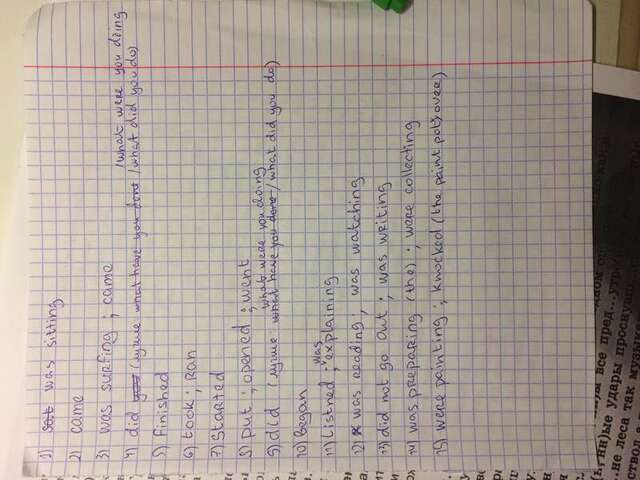 1) was sitting
2) came
3) was surfing ; came
/what were you doing
4) did (лучше what have you done /what did you do)
5) Finished
6) took ; Ran
7) Started
8) put ; opened ; went
what were you doing
9) did (лучше what have you done /what did you do)
10) Began
was
11) listned ; explaining
12) was reading ; was watching
13) did not go out ; was writing
14) was preparing (the) ; were collecting
15) were painting ; knocked (the paint pot) over)